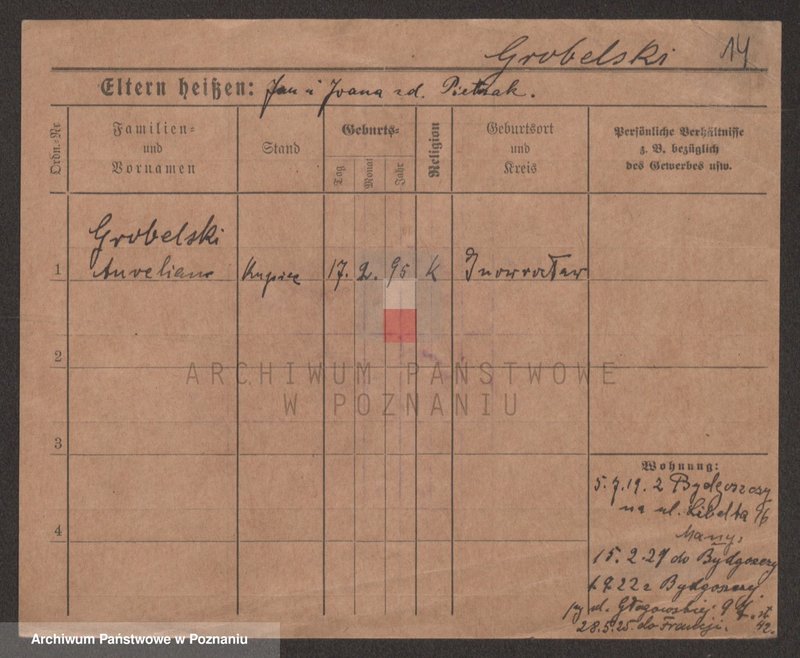 Grobelski 14
Eltern heißen: Jan i Joana zd. Pietrzak.
Ordn.-Nr
Familien- und Vornamen
Stand
Geburts-
Tag
Monat
Jahr
Religion
Geburtsort und Kreis
Persönliche Verhältnisse
z. B. bezüglich
des Gewerbes usw.
Grobelski
1 Kupiec 17. 2. 95 K Inowrocław
2
ARCHIWUM PAŃSTWOWE
W POZNANIU
3
Wohnung:
5.7.19. z Bydgoszczy
na ul. Libelta
4
15.2.21 do Bydgoszczy
22 z Bydgoszczy
ul. Głogowskiej
28.5.25. do Francji.
Archiwum Państwowe w Poznaniu